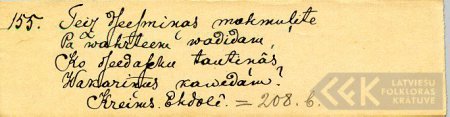 155. Teiz Heesminas makmulite
Pa wahrteem wadidam,
Ko Needaschu tautinâs
Wakarinas kawedam?
Kreims. Ehdolê. = 208. b.
LATVIEŠU
FOLKLORAS
KRĀTUVE